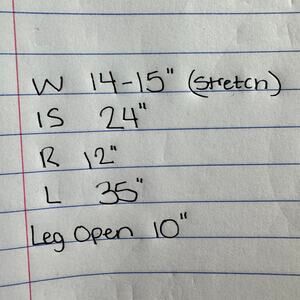 W 14-15" (Stretch)
IS 24"
R 12"
L 35"
Leg Open 10"